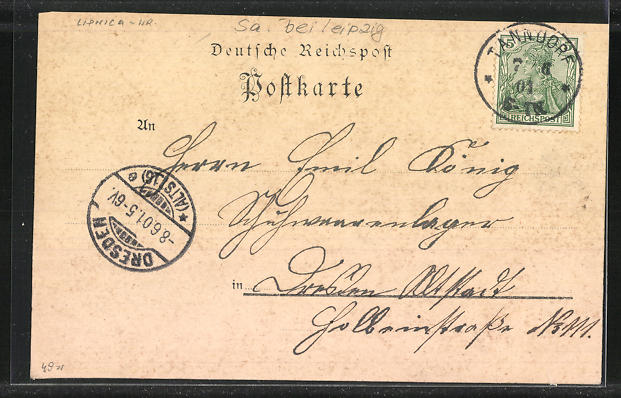 LIPNICA-HR.
Sa. bei Leipzig
Deutsche Reichspost
Postkarte
TANNDORF
7 6
01
REICHSPOST
An
Herrn Emil König
Schuhwaarenlager
in Dresden Altstadt
Holbeinstraße No 111.
DRESDEN
-8.6.01.5-6V.
* (ALTST.)16 e